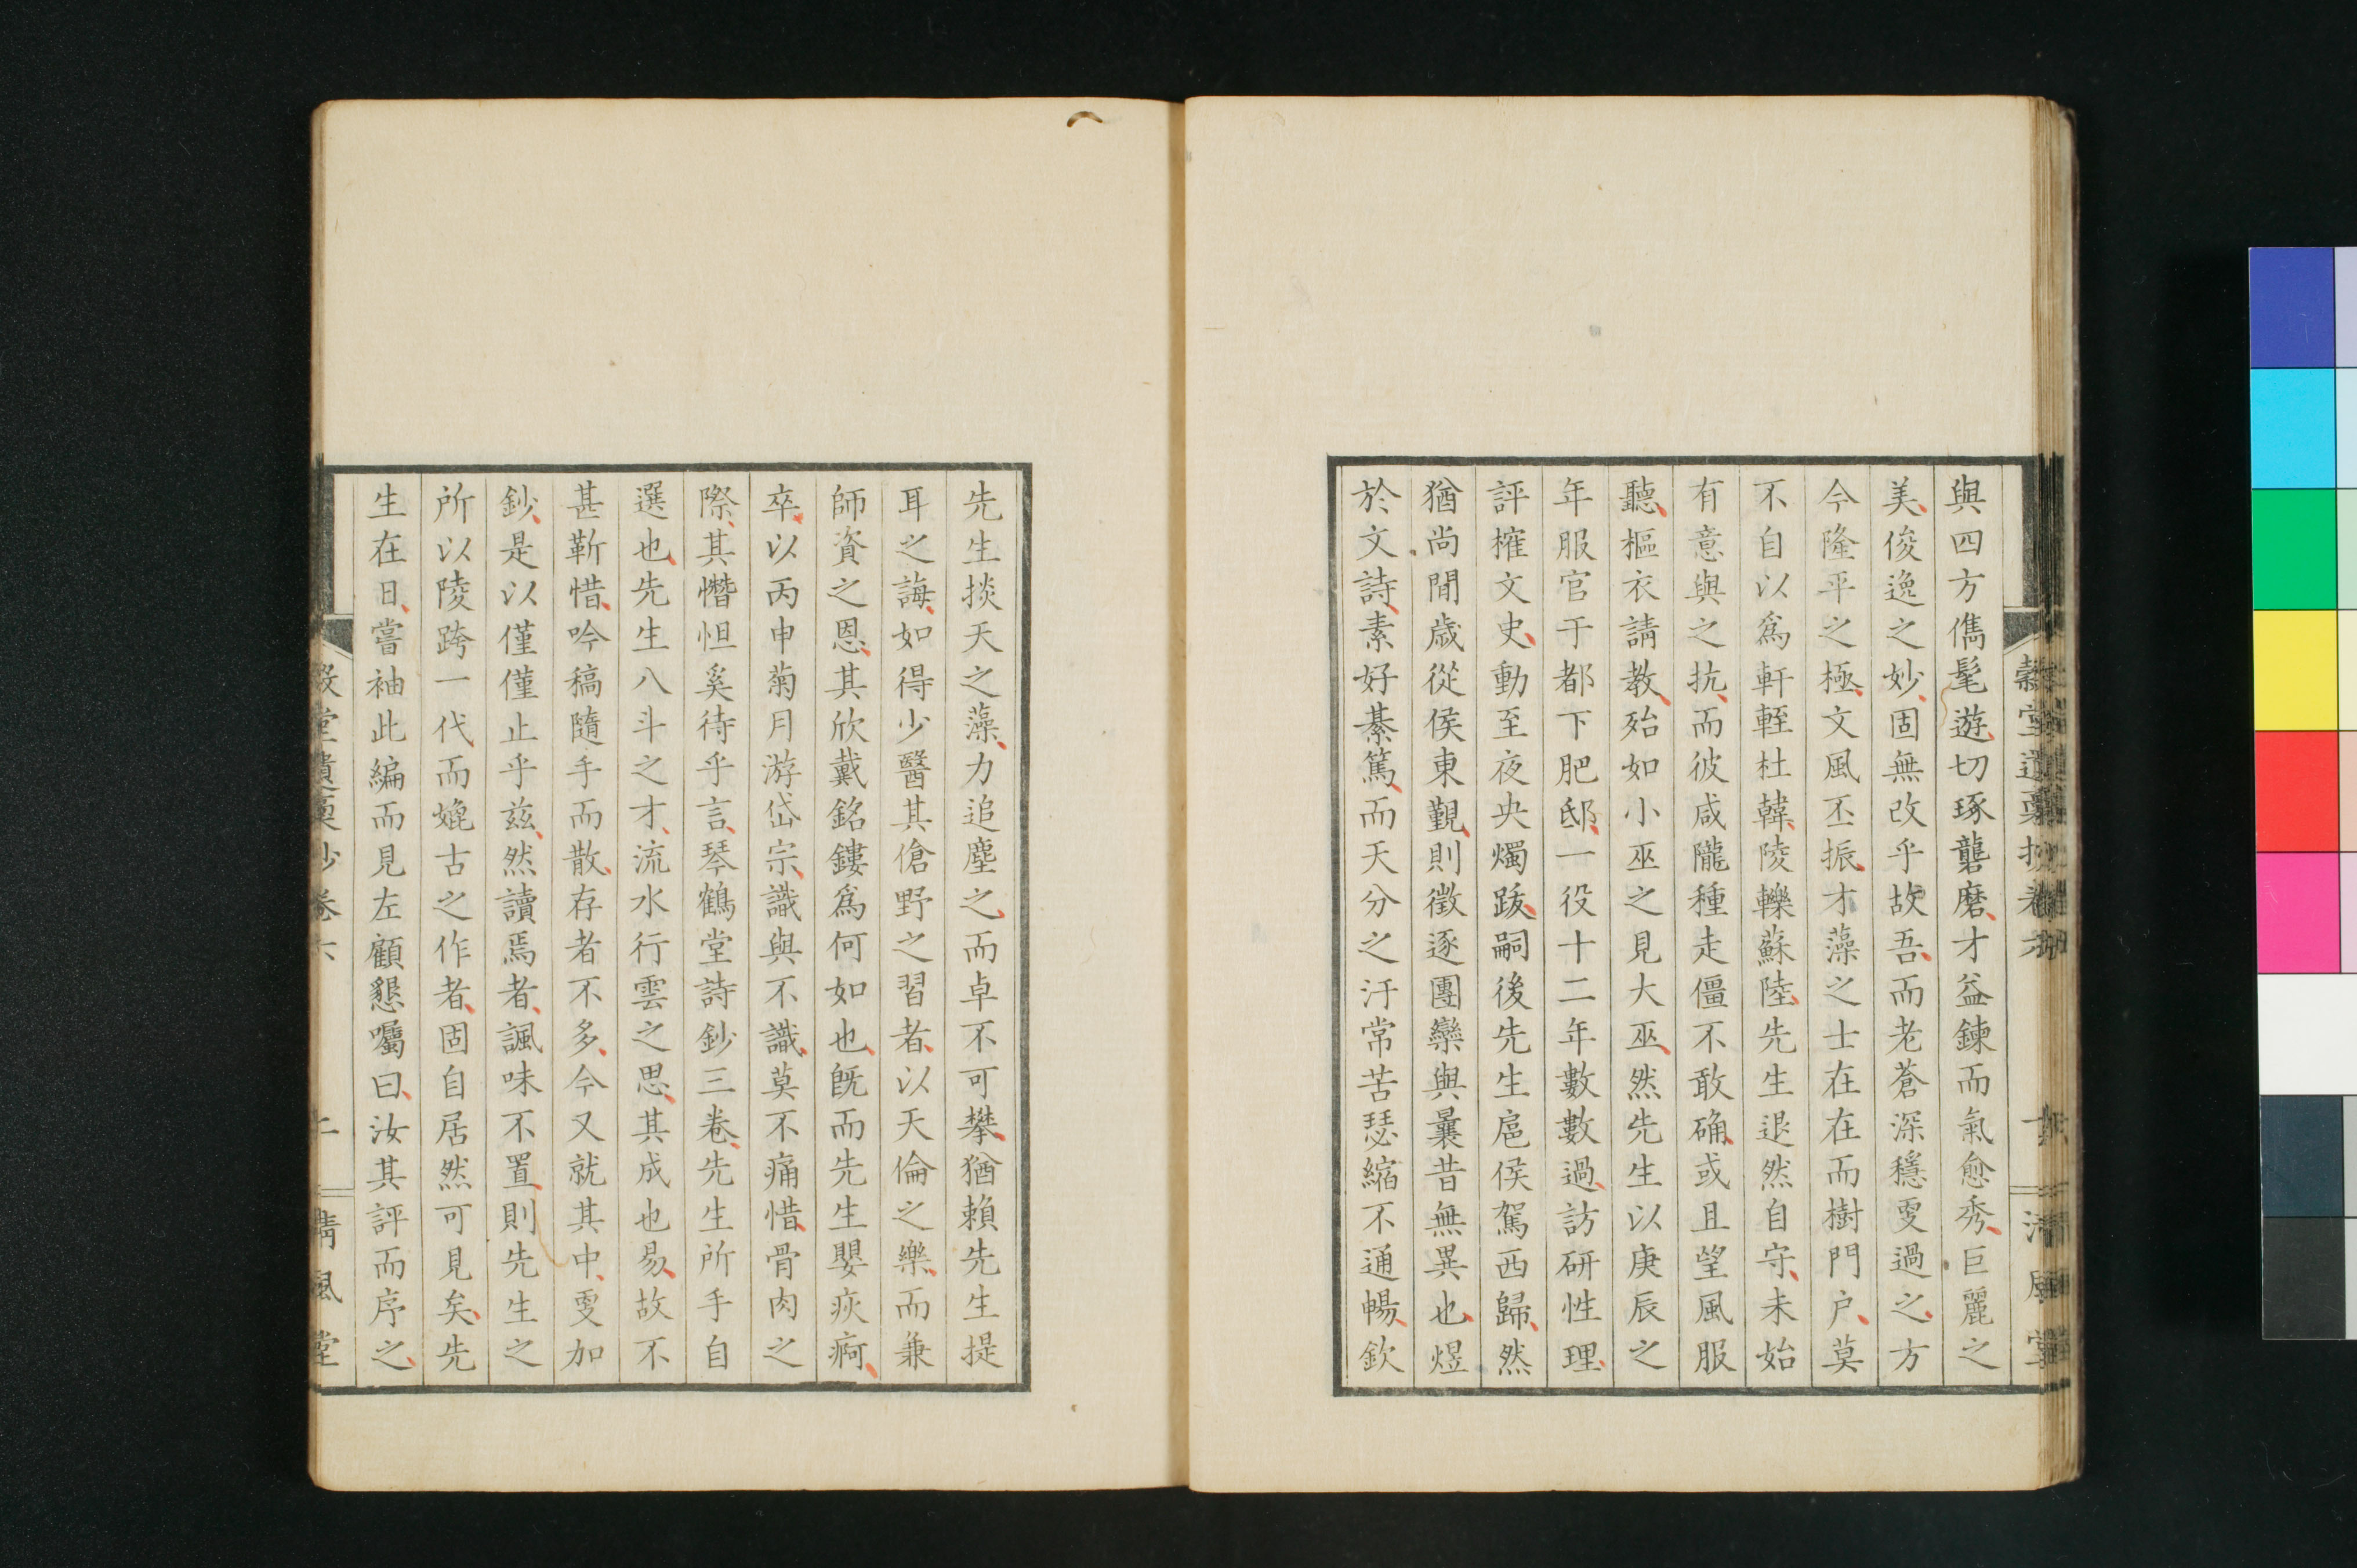 與四方儁髦遊切琢礱磨才益鍊而氣愈秀巨麗之
美俊逸之妙固無改乎故吾而老蒼深穩更過之方
今隆平之極文風丕振才藻之士在在而樹門戶莫
不自以爲軒輊杜韓陵轢蘇陸先生退然自守未始
有意與之抗而彼咸隴種走僵不敢确或且望風服
聽摳衣請教殆如小巫之見大巫然先生以庚辰之
年服官于都下肥邸一役十二年數數過訪研性理
評搉文史動至夜央燭跋嗣後先生扈侯駕西歸然
猶尚間歲從侯東覲則徵逐團欒與曩昔無異也煜
於文詩素好綦篤而天分之汙常苦瑟縮不通暢欽
先生掞天之藻力追塵之而卓不可攀猶賴先生提
耳之誨如得少醫其傖野之習者以天倫之樂而兼
師資之恩其欣戴銘鏤爲何如也旣而先生嬰疢痾
卒以丙申菊月游岱宗識與不識莫不痛惜骨肉之
際其憯怛奚待乎言琴鶴堂詩鈔三卷先生所手自
選也先生八斗之才流水行雲之思其成也易故不
甚靳惜吟稿隨手而散存者不多今又就其中更加
鈔是以僅僅止乎茲然讀焉者諷味不置則先生之
所以陵跨一代而媲古之作者固自居然可見矣先
生在日嘗袖此編而見左顧懇囑曰汝其評而序之
堂遺稾抄卷六
清風堂